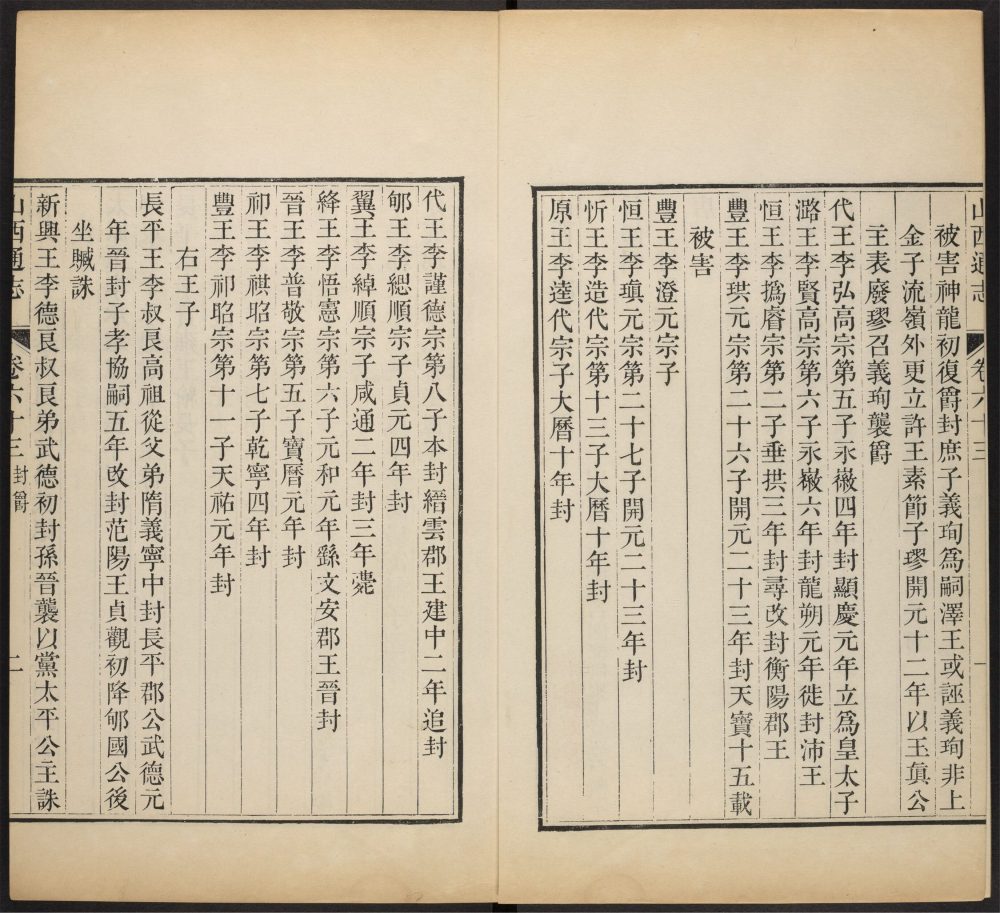 山西通志 卷六十三 一
被害神龍初復爵封庶子義珣爲嗣澤王或誣義珣非上
金子流嶺外更立許王素節子璆開元十二年以玉眞公
主表廢璆召義珣襲爵
代王李弘高宗第五子永徽四年封顯慶元年立爲皇太子
潞王李賢高宗第六子永徽六年封龍朔元年徙封沛王
恒王李撝睿宗第二子垂拱三年封尋改封衡陽郡王
豐王李珙元宗第二十六子開元二十三年封天寶十五載
被害
豐王李澄元宗子
恒王李瑱元宗第二十七子開元二十三年封
忻王李造代宗第十三子大曆十年封
原王李逵代宗子大曆十年封
代王李諲德宗第八子本封縉雲郡王建中二年追封
郇王李綛順宗子貞元四年封
翼王李綽順宗子咸通二年封三年薨
絳王李悟憲宗第六子元和元年繇文安郡王晉封
晉王李普敬宗第五子寶曆元年封
祁王李祺昭宗第七子乾寧四年封
豐王李祁昭宗第十一子天祐元年封
右王子
長平王李叔良高祖從父弟隋義寧中封長平郡公武德元
年晉封子孝協嗣五年改封范陽王貞觀初降郇國公後
坐贓誅
新興王李德良叔良弟武德初封孫晉襲以黨太平公主誅
山西通志 卷六十三 封爵 二